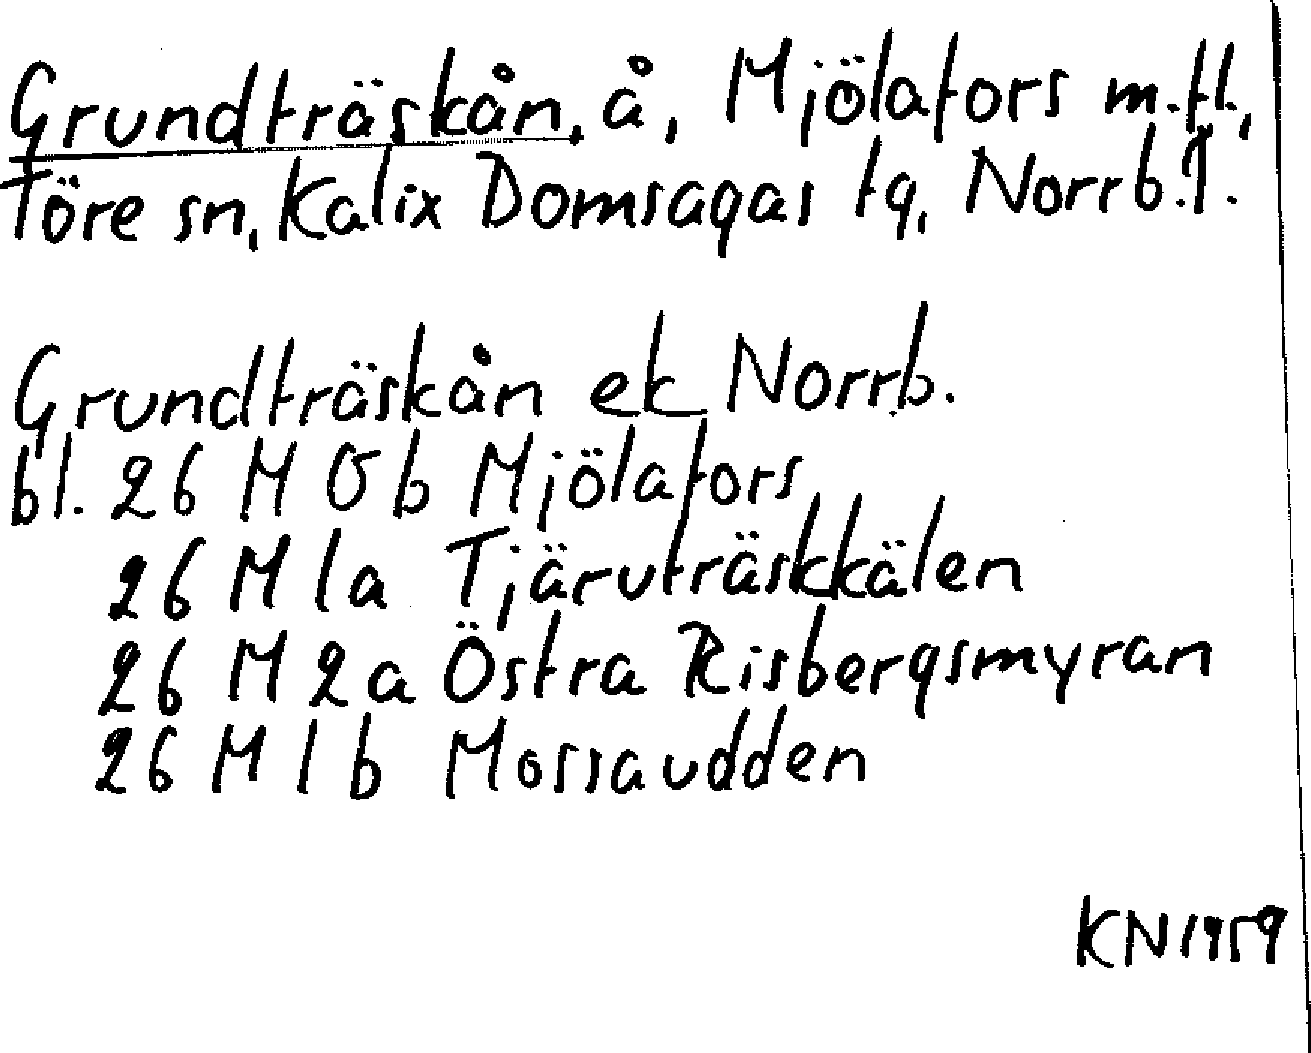 Grundträskån, å, Mjölafors m.fl.,
Töre sn, Kalix Domsagas tg, Norrb.l.
Grundträskån ek Norrb.
bl. 26 M 0b Mjölafors
26 M 1a Tjäruträskkälen
26 M 2a Östra Risbergsmyran
26 M 1b Mossaudden
KN 1959